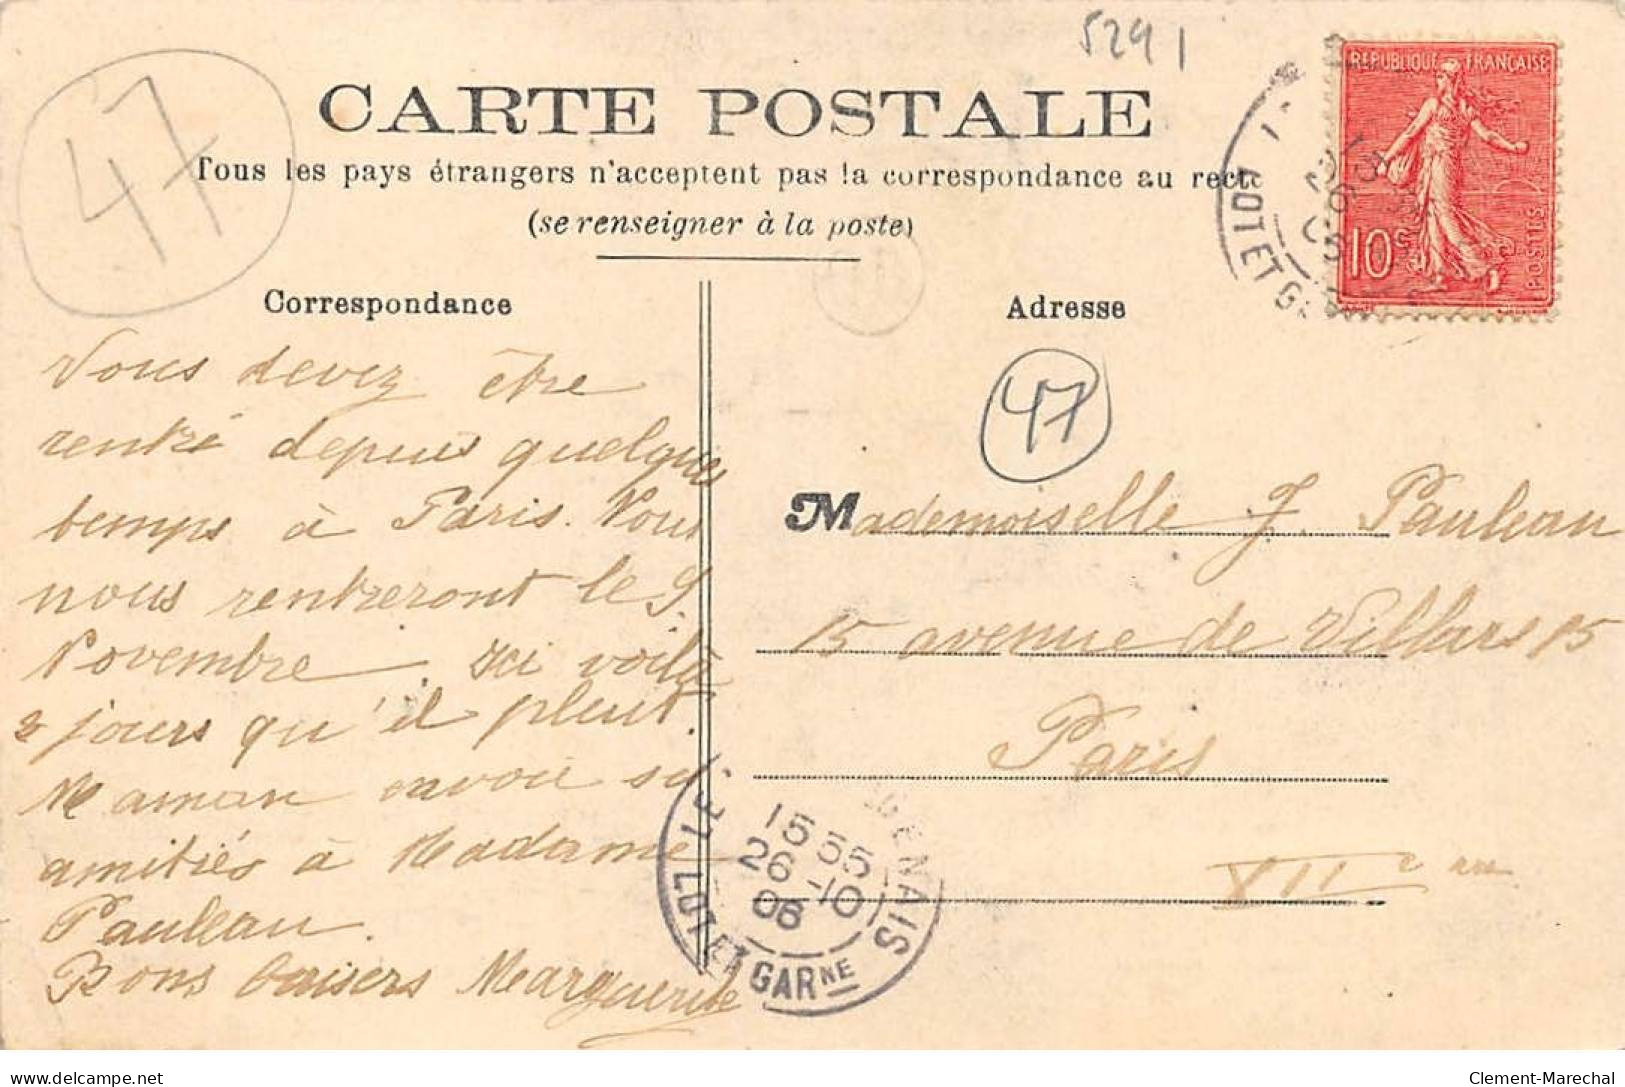 5291
47
CARTE POSTALE
Tous les pays étrangers n'acceptent pas la correspondance au recto
(se renseigner à la poste)
REPUBLIQUE FRANÇAISE
10c
POSTES
LOT ET G
Correspondance
Adresse
47
Vous devez être
rentré depuis quelques
temps à Paris. Nous
nous rentreront le 9.
Novembre. Ici voilà
2 jours qu'il pleut.
Maman envoie ses
amitiés à Madame
Pauleau.
Bons baisers Marguerite
Mademoiselle J. Pauleau
15 avenue de Villars 15
Paris
VIIe arr
15 55
26 -10
06
LOT ET GARNE
ENAIS
delcampe.net
Clement-Marechal